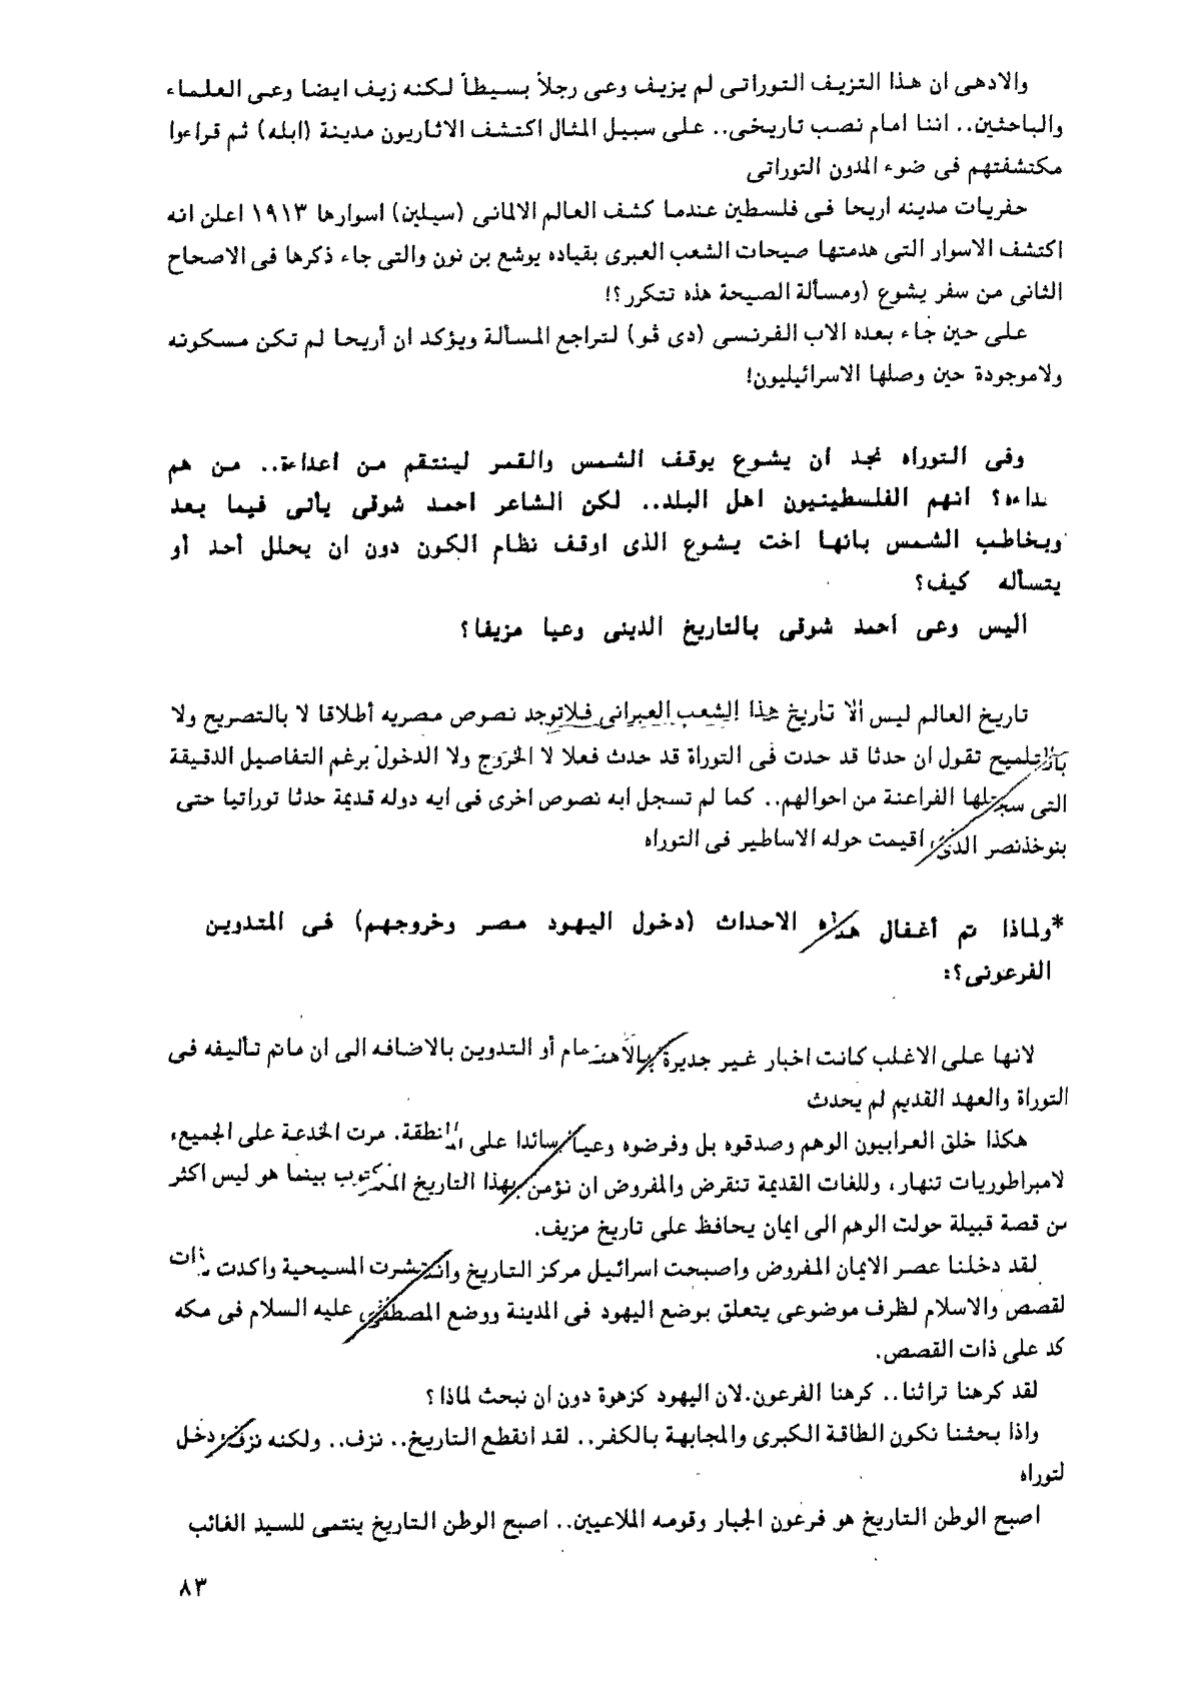 والادهى ان هذا التزيف التوراتى لم يزيف وعى رجلاً بسيطاً لكنه زيف ايضا وعى العلماء
والباحثين.. اننا امام نصب تاريخى.. على سبيل المثال اكتشف الاثاريون مدينة (ابله) ثم قراءوا
مكتشفتهم فى ضوء المدون التوراتى
حفريات مدينه اريحا فى فلسطين عندما كشف العالم الالمانى (سيلين) اسوارها ١٩١٣ اعلن انه
اكتشف الاسوار التى هدمتها صيحات الشعب العبرى بقياده يوشع بن نون والتى جاء ذكرها فى الاصحاح
الثانى من سفر يشوع (ومسألة الصيحة هذه تتكرر؟!
على حين جاء بعده الاب الفرنسى (دى ڤو) لتراجع المسألة ويؤكد ان أريحا لم تكن مسكونه
ولاموجودة حين وصلها الاسرائيليون!
وفى التوراه نجد ان يشوع يوقف الشمس والقمر لينتقم من اعداءة.. من هم
داءه؟ انهم الفلسطينيون اهل البلد.. لكن الشاعر احمد شوقى يأتى فيما بعد
ويخاطب الشمس بانها اخت يشوع الذى اوقف نظام الكون دون ان يحلل أحد أو
يتسأله كيف؟
أليس وعى أحمد شوقى بالتاريخ الدينى وعيا مزيفا؟
تاريخ العالم ليس ألا تاريخ هذا الشعب العبرانى فلاتوجد نصوص مصريه أطلاقا لا بالتصريح ولا
بالتلميح تقول ان حدثا قد حدت فى التوراة قد حدث فعلا لا الخروج ولا الدخول برغم التفاصيل الدقيقة
التى سجلها الفراعنة من احوالهم.. كما لم تسجل ايه نصوص اخرى فى ايه دوله قديمة حدثا توراتيا حتى
بنوخذنصر الذى اقيمت حوله الاساطير فى التوراه
*ولماذا تم أغفال هذه الاحداث (دخول اليهود مصر وخروجهم) فى التدوين
الفرعونى؟:
لانها على الاغلب كانت اخبار غير جديرة بالاهتمام أو التدوين بالاضافه الى ان ماتم تأليفه فى
التوراة والعهد القديم لم يحدث
هكذا خلق العرابيون الوهم وصدقوه بل وفرضوه وعيا سائدا على المنطقة. مرت الخدعة على الجميع،
لامبراطوريات تنهار، وللغات القديمة تنقرض والمفروض ان نؤمن بهذا التاريخ المكتوب بينما هو ليس اكثر
من قصة قبيلة حولت الوهم الى ايمان يحافظ على تاريخ مزيف.
لقد دخلنا عصر الايمان المفروض واصبحت اسرائيل مركز التاريخ وانتشرت المسيحية واكدت ذات
لقصص والاسلام لظرف موضوعى يتعلق بوضع اليهود فى المدينة ووضع المصطفى عليه السلام فى مكه
كد على ذات القصص.
لقد كرهنا تراثنا.. كرهنا الفرعون.لان اليهود كزهوة دون ان نبحث لماذا؟
واذا بحثنا نكون الطاقة الكبرى والمجابهة بالكفر.. لقد انقطع التاريخ.. نزف.. ولكنه نزف دخل
لتوراه
اصبح الوطن التاريخ هو فرعون الجبار وقومه الملاعيين.. اصبح الوطن التاريخ ينتمى للسيد الغائب
٨٣